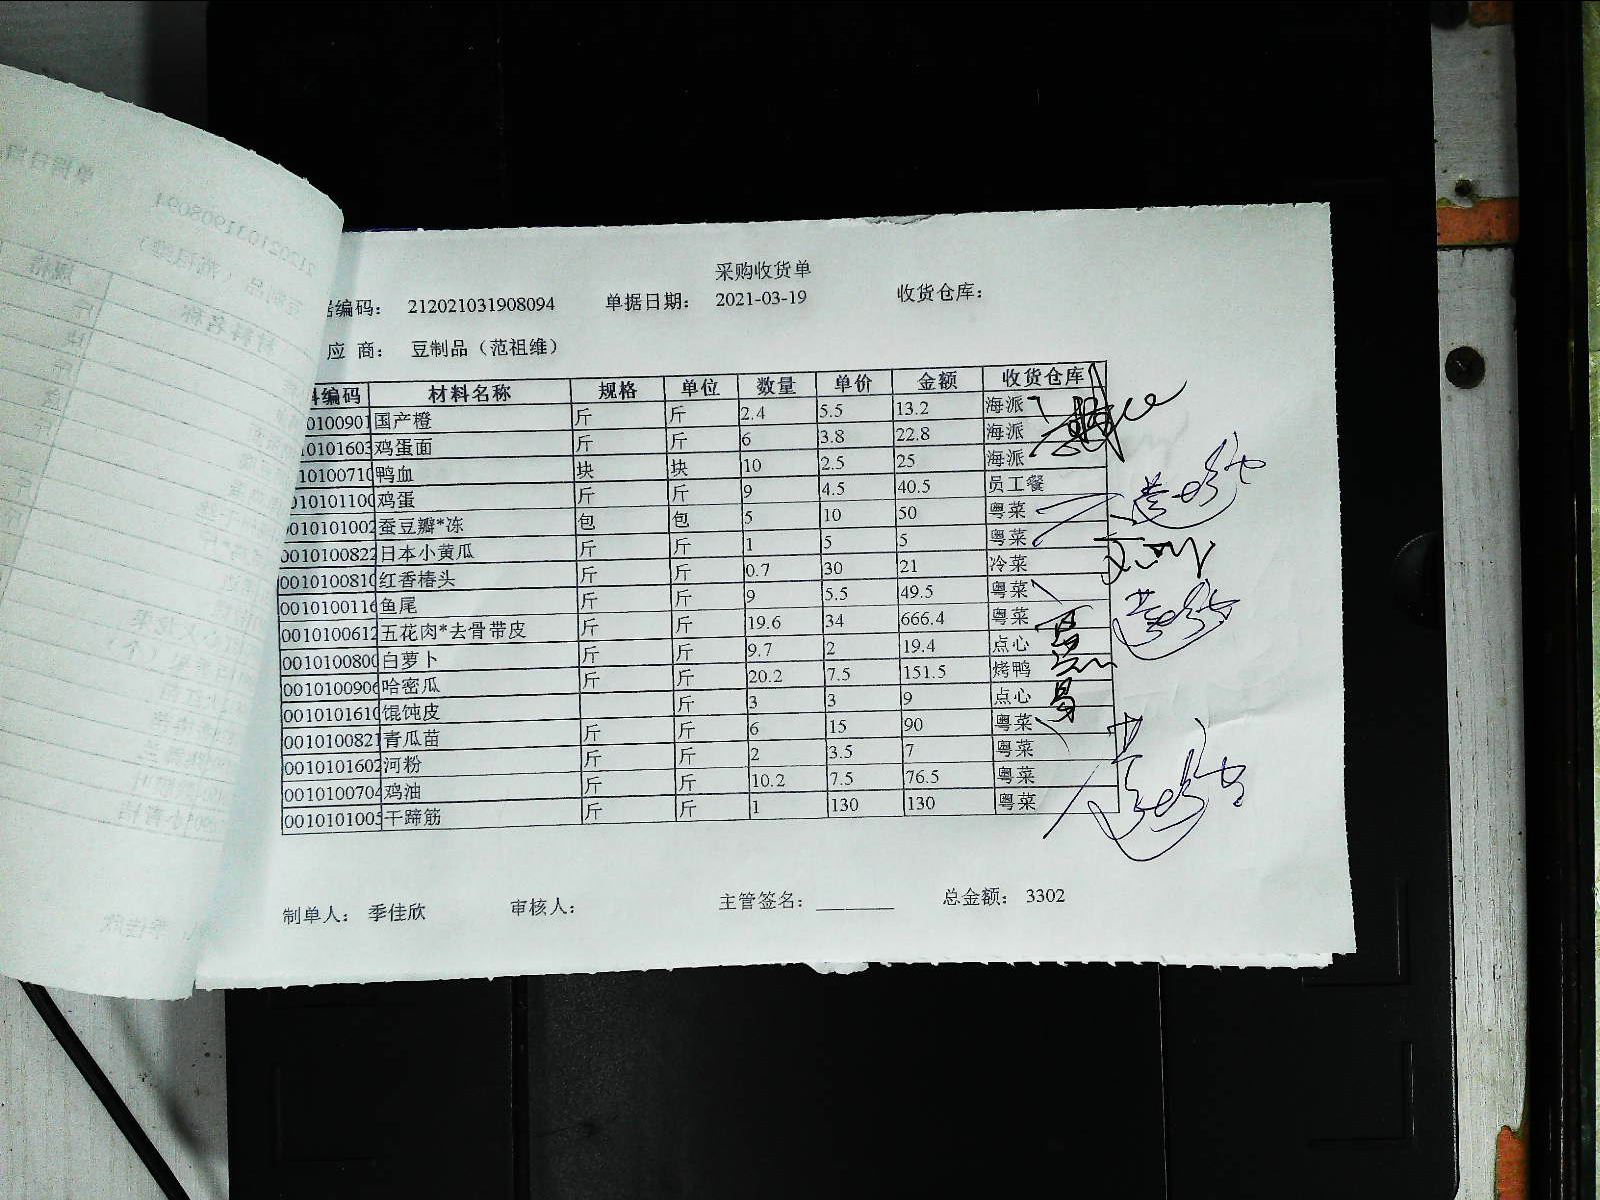 采购收货单
编码： 212021031908094 单据日期： 2021-03-19 收货仓库：
应 商： 豆制品（范祖维）
编码 材料名称 规格 单位 数量 单价 金额 收货仓库
0100901 国产橙 斤 斤 2.4 5.5 13.2 海派
0101603 鸡蛋面 斤 斤 6 3.8 22.8 海派
10100710 鸭血 块 块 10 2.5 25 海派
010101100 鸡蛋 斤 斤 9 4.5 40.5 员工餐
0010101002 蚕豆瓣*冻 包 包 5 10 50 粤菜
0010100822 日本小黄瓜 斤 斤 1 5 5 粤菜
0010100810 红香椿头 斤 斤 0.7 30 21 冷菜
0010100116 鱼尾 斤 斤 9 5.5 49.5 粤菜
0010100612 五花肉*去骨带皮 斤 斤 19.6 34 666.4 粤菜
0010100800 白萝卜 斤 斤 9.7 2 19.4 点心
0010100906 哈密瓜 斤 斤 20.2 7.5 151.5 烤鸭
0010101610 馄饨皮 斤 3 3 9 点心
0010100821 青瓜苗 斤 斤 6 15 90 粤菜
0010101602 河粉 斤 斤 2 3.5 7 粤菜
0010100704 鸡油 斤 斤 10.2 7.5 76.5 粤菜
0010101005 干蹄筋 斤 斤 1 130 130 粤菜
制单人： 季佳欣 审核人： 主管签名：________ 总金额： 3302